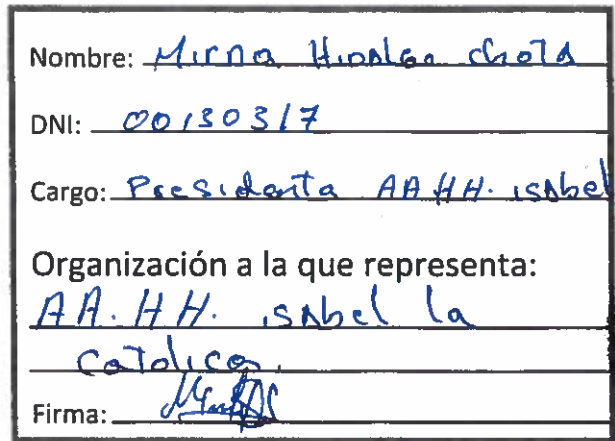 Nombre: Mirna Hidalgo Chota
DNI: 00130317
Cargo: Presidenta AA HH. isabel
Organización a la que representa:
AA. HH. isabel la
Catolica.
Firma: